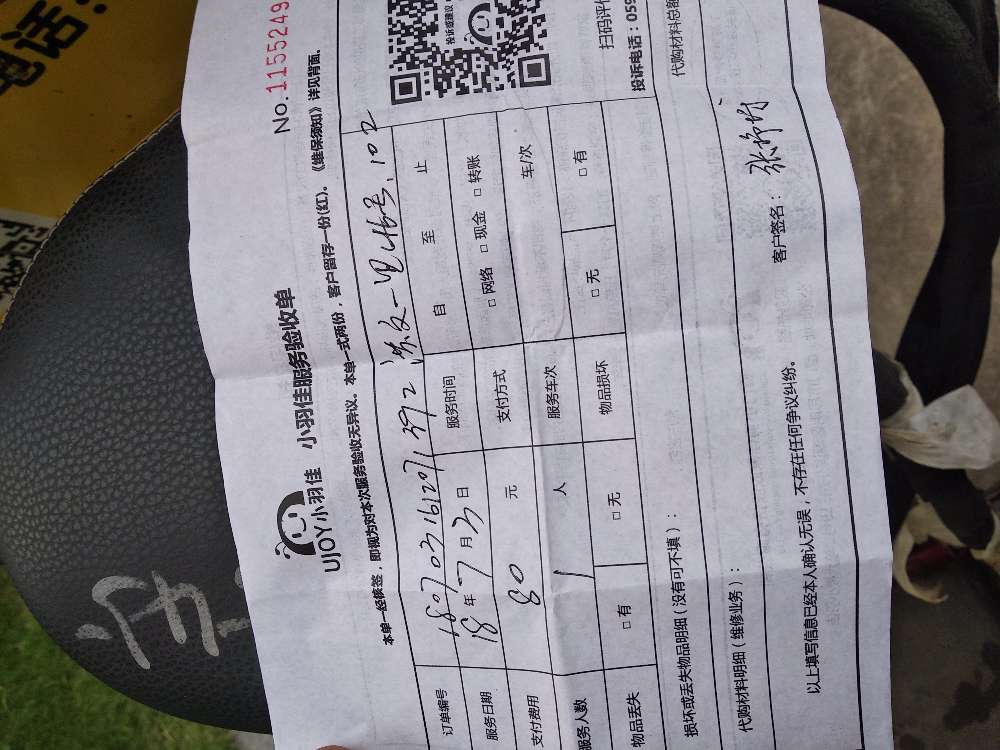 电话:
No.1155249
UJOY小羽佳 小羽佳服务验收单
本单一经核签，即视为对本次服务验收无异议。本单一式两份，客户留存一份(红)。《维保须知》详见背面。
订单编号
服务日期 18 年 7 月 3 日 服务时间 自 至 止
支付费用 80 元 支付方式 □ 网络 □ 现金 □ 转账
服务人数 1 人 服务车次 车/次
物品丢失 □ 有 □ 无 物品损坏 □ 无 □ 有
损坏或丢失物品明细(没有可不填)：
代购材料明细(维修业务)： 代购材料总额
以上填写信息已经本人确认无误，不存在任何争议纠纷。 客户签名：
投诉或建议
扫码评价
投诉电话：059